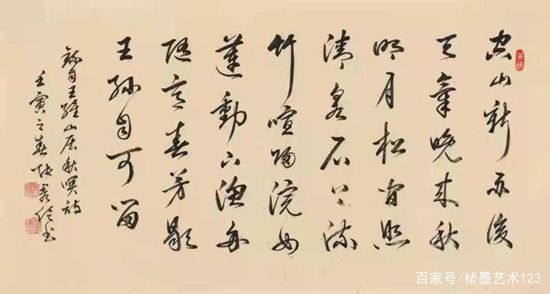 空山新雨後
天氣晚来秋
明月松间照
清泉石上流
竹喧歸浣女
蓮動下漁舟
随意春芳歇
王孫自可留
録自王維山居秋暝詩
壬寅之春书
百家号/楮墨艺术123